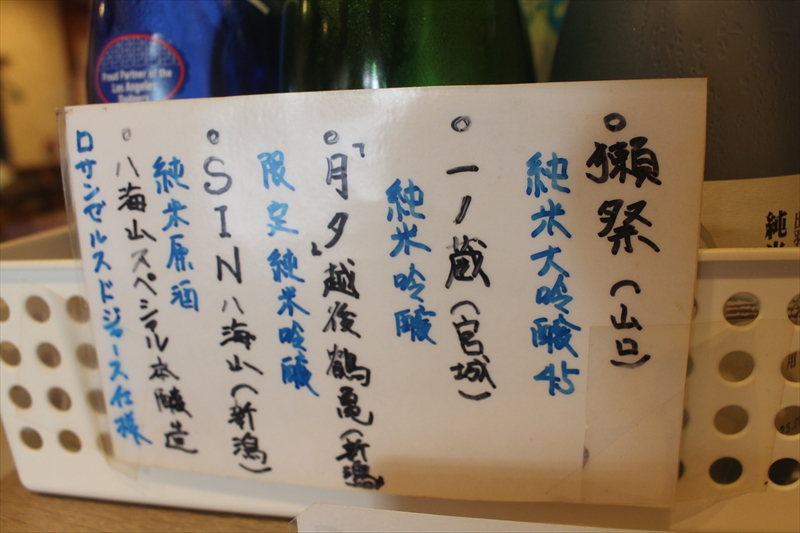 獺祭(山口)
純米大吟醸45
一ノ蔵(宮城)
純米吟醸
「月夕」越後鶴亀(新潟)
限定純米吟醸
SIN八海山(新潟)
純米原酒
八海山スペシャル本醸造
ロサンゼルスドジャース仕様
Proud Partner of the
Los Angeles
Dodgers
純米